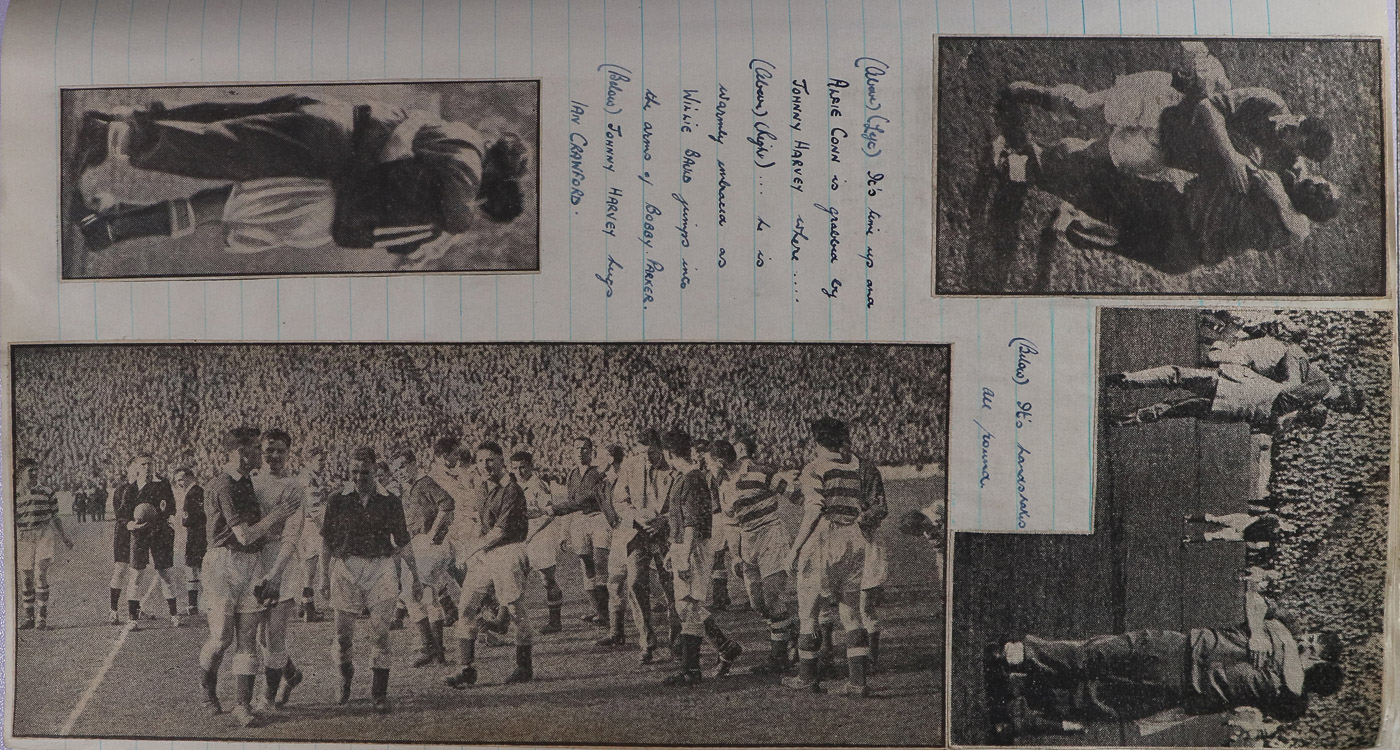 (Above) (Left) It's time up and
ALFIE CONN is grabbed by
JOHNNY HARVEY where ....
(Above) (Right) ... he is
warmly embraced as
WILLIE BAULD jumps into
the arms of BOBBY PARKER.
(Below) JOHNNY HARVEY hugs
IAN CRAWFORD.
(Below) It's handshakes
all round.